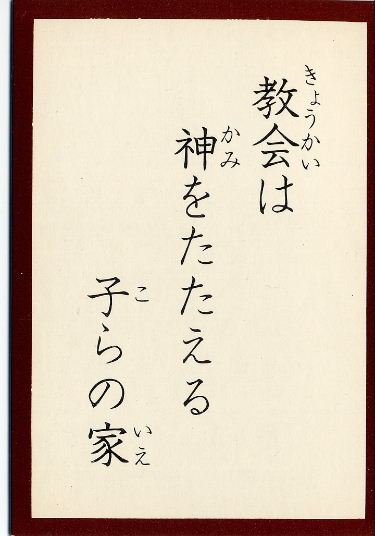 教会は
きょうかい
神をたたえる
かみ
子らの家
こ
いえ